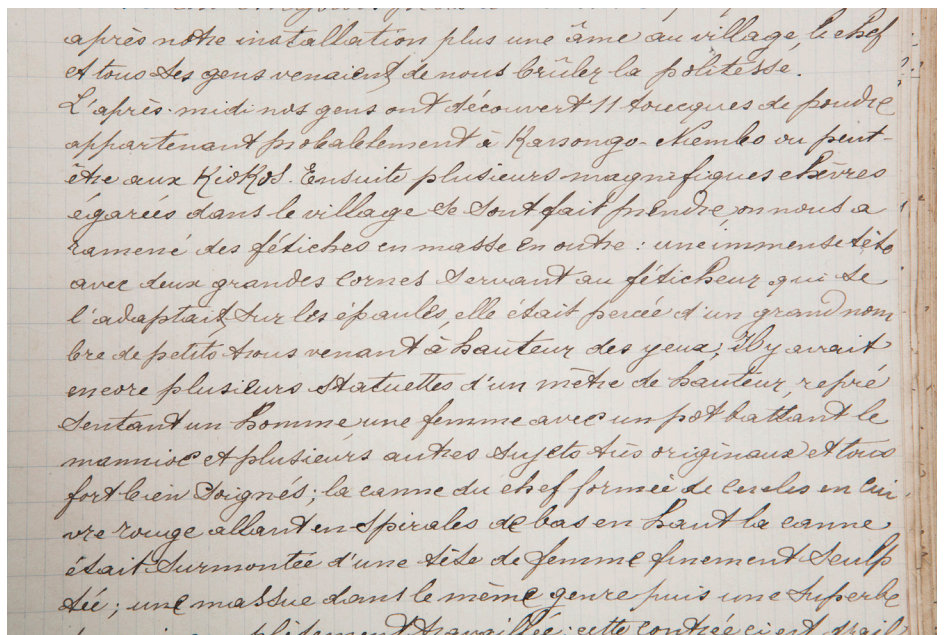 après notre installation plus une âme au village, le chef
et tous ses gens venaient de nous brûler la politesse.
L'après-midi nos gens ont découvert 11 toucques de poudre
appartenant probablement à Kasongo-Niembo ou peut-
être aux Kiokos. Ensuite plusieurs magnifiques chèvres
égarées dans le village se sont fait prendre, on nous a
ramené des fétiches en masse en outre : une immense tête
avec deux grandes cornes servant au féticheur qui se
l'adaptait sur les épaules, elle était percée d'un grand nom
bre de petits trous venant à hauteur des yeux; Il y avait
encore plusieurs statuettes d'un mètre de hauteur, repré
sentant un homme une femme avec un pot battant le
mannioc et plusieurs autres sujets très originaux et tous
fort bien soignés; la canne du chef formée de cercles en cui
vre rouge allant en spirales de bas en haut la canne
était surmontée d'une tête de femme finement sculp
tée; une massue dans le même genre puis une superbe
travaillée; cette contrée ci est